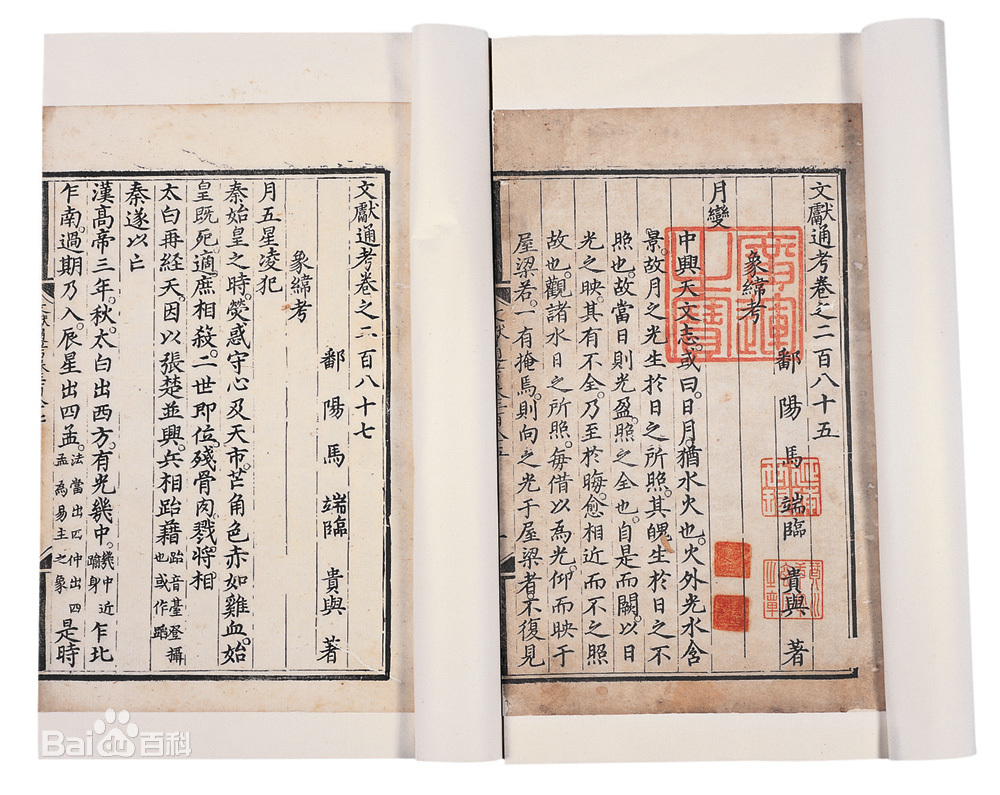 文獻通考卷之二百八十五
鄱陽馬端臨貴與著
象緯考
月變
中興天文志。或曰。日月。猶水火也。火外光水含
景。故月之光生於日之所照。其魄生於日之不
照也。故當日則光盈。照之全也。自是而闕。以日
光之映。其有不全。乃至於晦。愈相近而不之照
故也。觀諸水日之所照。每借以為光。仰而映于
屋梁若。一有掩焉。則向之光于屋梁者不復見
文獻通考卷之二百八十七
鄱陽馬端臨貴與著
象緯考
月五星凌犯
秦始皇之時。熒惑守心及天市。芒角色赤如雞血。始
皇既死。適庶相殺。二世即位。殘骨肉。戮將相
太白再經天。因以張楚並興。兵相跆藉跆音臺登攝也或作蹈
秦遂以亡
漢高帝三年。秋。太白出西方。有光幾中。幾中近踰身乍北
乍南。過期乃入。辰星出四孟。法當出四仲出四孟為易主之象是時
Bai百科